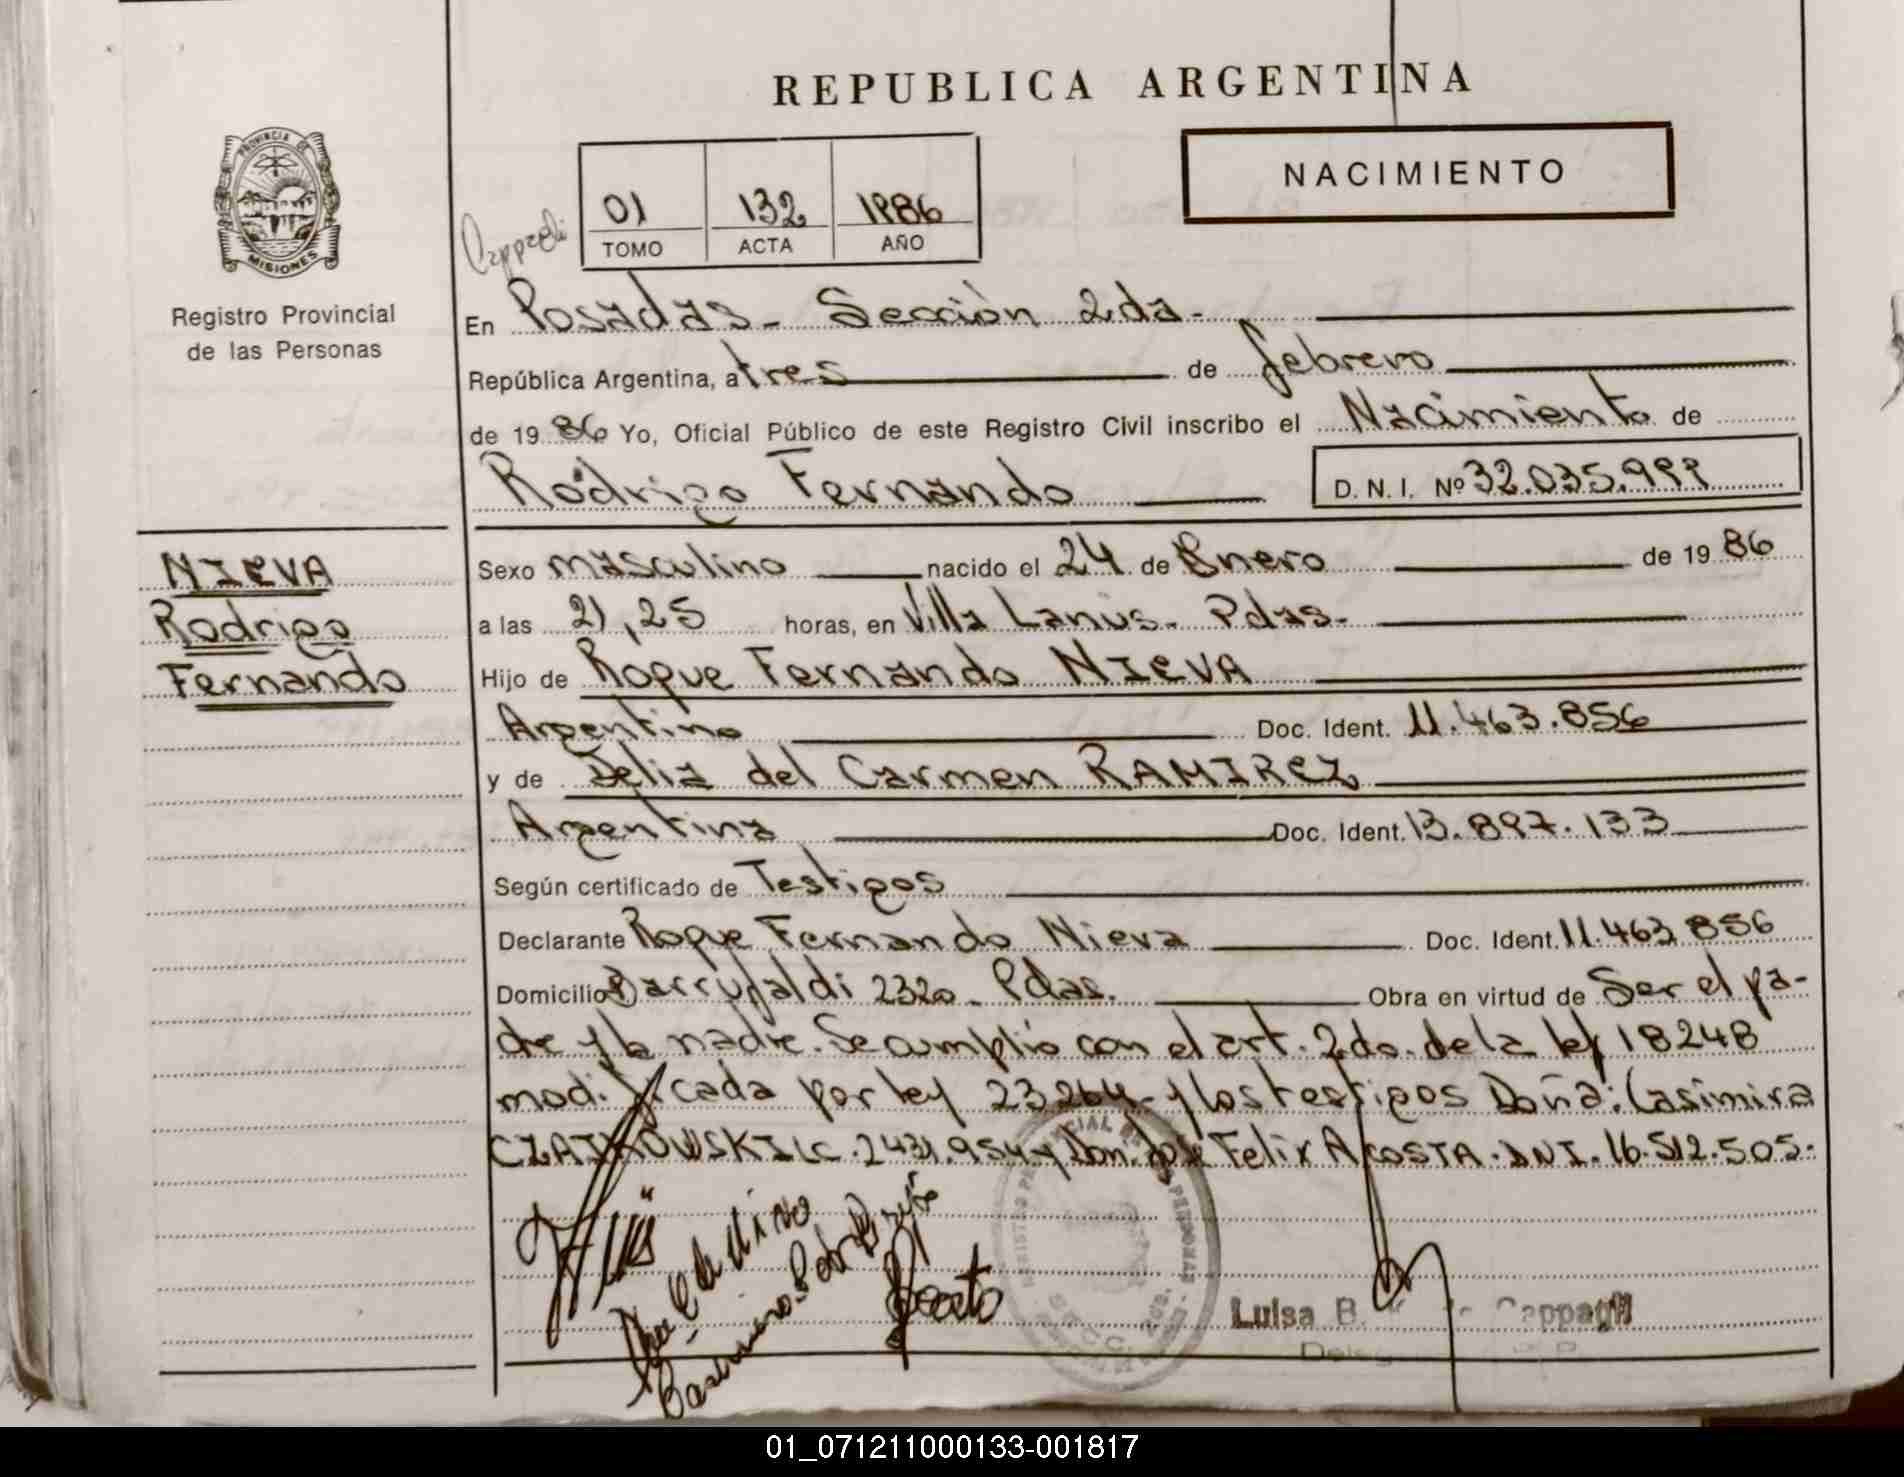 REPUBLICA ARGENTINA
PROVINCIA DE
MISIONES
Registro Provincial
de las Personas
NACIMIENTO
01 132 1986
TOMO ACTA AÑO
En Posadas - Sección 2da -
República Argentina, a tres de febrero
de 19 86 Yo, Oficial Público de este Registro Civil inscribo el Nacimiento de
Rodrigo Fernando D. N. I. Nº 32.035.999
NIEVA
Rodrigo
Fernando
Sexo masculino nacido el 24 de Enero de 19 86
a las 21,25 horas, en Villa Lanús - Pdas.
Hijo de Roque Fernando NIEVA
Argentino Doc. Ident. 11.463.856
y de Delia del Carmen RAMIREZ
Argentina Doc. Ident. 13.897.133
Según certificado de Testigos
Declarante Roque Fernando Nieva Doc. Ident. 11.463.856
Domicilio 2320 - Pdas. Obra en virtud de Ser el pa-
dre y la madre. Se cumplió con el art. 2do. de la ley 18248
modificada por ley 23264 - y los testigos Doña: Casimira
LC. 2431.954 y Don. José Felix ACOSTA. DNI. 16.512.505.
Luisa B. de Cappagli
01_071211000133-001817